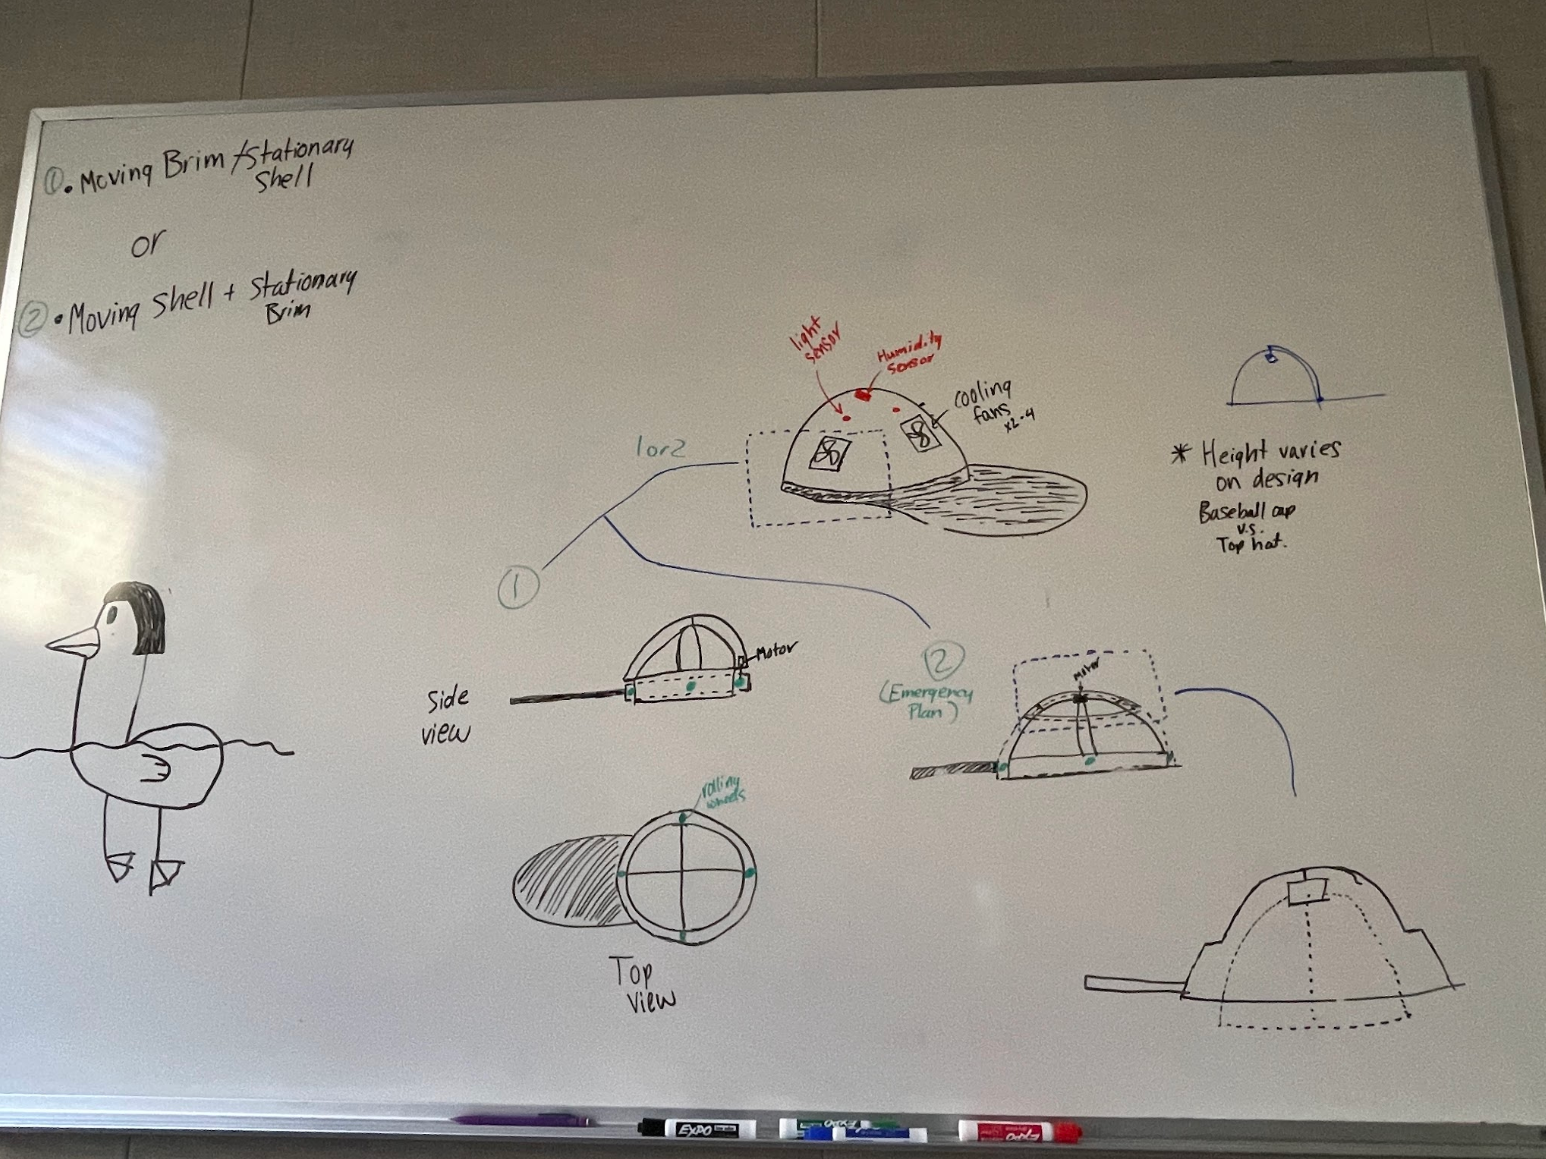 ①. Moving Brim + Stationary
Shell
or
②. Moving Shell + Stationary
Brim
light
sensor
Humidity
sensor
cooling
fans
x2-4
1 or 2
* Height varies
on design
Baseball cap
v.s.
Top hat.
①
Side
view
Motor
②
(Emergency
Plan)
Motor
rolling
wheels
Top
view
EXPO
EXPO
EXPO